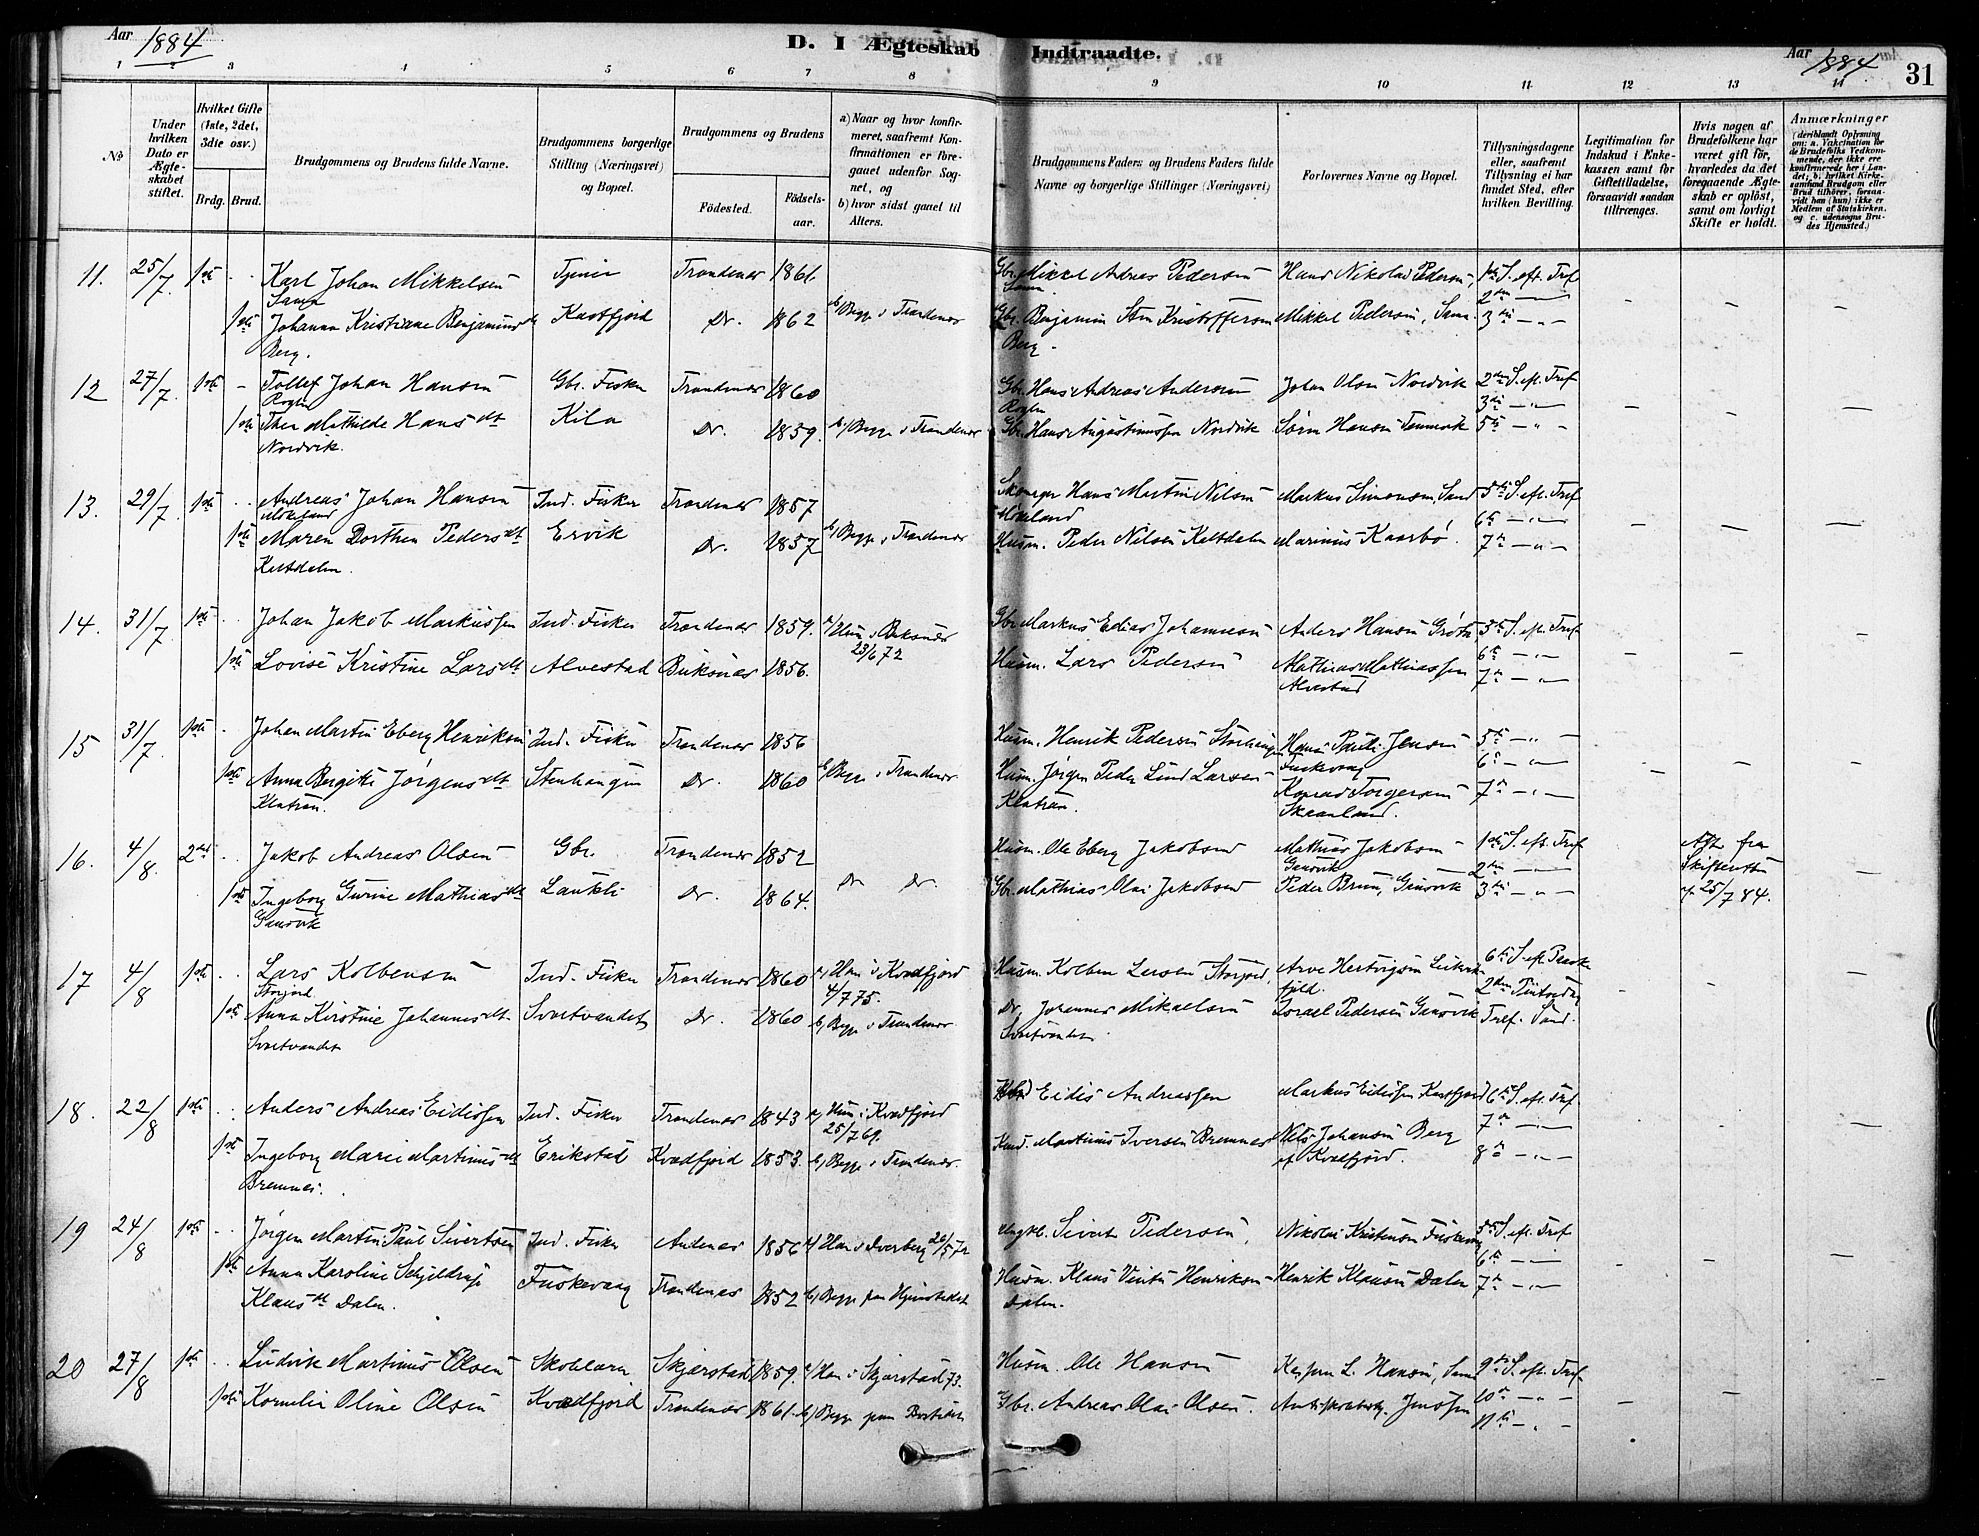 Aar 1884
D. I Ægteskab Indtraadte.
Aar 1884
31
1 2 3 4 5 6 7 8 9 10 11 12 13 14
No
Under hvilken Dato er Ægteskabet stiftet.
Hvilket Gifte (1ste, 2det, 3die osv.)
Brdg. Brud.
Brudgommens og Brudens fulde Navne.
Brudgommens borgerlige Stilling (Næringsvei) og Bopæl.
Brudgommens og Brudens
Fødested.
Fødselsaar.
a) Naar og hvor konfirmeret, saafremt Konfirmationen er foregaaet udenfor Sognet, og
b) hvor sidst gaaet til Alters.
Brudgommens Faders og Brudens Faders fulde Navne og borgerlige Stillinger (Næringsvei)
Forlovernes Navne og Bopæl.
Tillysningsdagene eller, saafremt Tillysning ei har fundet Sted, efter hvilken Bevilling.
Legitimation for Indskud i Enkekassen samt for Giftetilladelse, forsaavidt saadan tiltrænges.
Hvis nogen af Brudefolkene har været gift før, hvorledes da det foregaaende Ægteskab er opløst, samt om lovligt Skifte er holdt.
Anmærkninger
(deriblandt Oplysning om: a. Vakcination for de Brudefolks Vedkommende, der ikke ere konfirmerede her i Landet, b. hvilket Kirkesamfund Brudgom eller Brud tilhører, forsaavidt han (hun) ikke er Medlem af Statskirken. og c. udensogns Brudes Hjemsted.)
11. 25/7. 1ste Karl Johan Mikkelsen Tjener Trondenæs 1861. Gbr. Mikkel Andreas Pedersen Hans Nikolai Pedersen, 1ste S. eft. Tref
Sama 2den — " —
1ste Johanna Kristiane Benjamins dt Kastfjord Do. 1862 b) Begge i Trondenæs Gbr. Benjamin Kristoffersen Mikkel Pedersen, Sama. 3die — " —
Berg. Berg.
12 27/7. 1ste Tollef Johan Hansen Gbr. Fisker Trondenæs 1860 Gbr. Hans Andreas Andersen Johan Olsen Nordvik 2den S. eft. Tref
3die — " —
1ste Thea Mathilde Hans dt Kila Do. 1859. b) Begge i Trondenæs Gbr. Hans Augustinussen Nordvik Søren Hansen 5te — " —
Nordvik.
13. 29/7. 1ste Andreas Johan Hansen Ind. Fisker Trondenæs 1857 Hans Martin Nilsen Markus Simonsen Sand 5te S. eft. Tref
Møkeland Møkeland 6te — " —
1ste Maren Dorthea Peders dt Ervik Do. 1857 b) Begge i Trondenæs Husm. Peder Nilsen Keltdalen Marinus Kaarbø. 7de — " —
Keltdalen.
14. 31/7. 1ste Johan Jakob Markussen Ind. Fisker Trondenæs 1859. a) Hun i Buksnæs Gbr. Markus Edias Johannesen Anders Hansen 5te S. eft. Tref
23/6 72 6te — " —
1ste Lovise Kristine Lars dt Alvestad Buksnæs 1856. Husm. Lars Pedersen Mathias Mathiassen 7de — " —
Alvestad
15 31/7. 1ste Johan Martin Eberg Henriksen Ind. Fisker Trondenæs 1856 Husm. Henrik Pedersen Hans Pauli Jensen 5te — " —
Fuskevaag 6te — " —
1ste Anna Bergitte Jørgens dt Do. 1860 b) Begge i Trondenæs Husm. Jørgen Peder Lind Larsen Konrad Torgersen 7de — " —
Klatran. Klatran. Skaanland.
16. 4/8. 2det Jakob Andreas Olsen Gbr. Trondenæs 1852 Husm. Ole Eberg Jakobsen Mathias Jakobsen 1ste S. eft. Tref Att. fra
Gausvik 2den — " — Skifteretten
1ste Ingeborg Gurine Mathias dt Laukli Do. 1864. Do Do. Gbr. Mathias Olai Jakobsen Peder Brun, Gausvik 3die — " — af 25/7 84.
Gausvik
17 4/8 1ste Lars Kolbensen Ind. Fisker Trondenæs 1860 a) Han i Kvædfjord Husm. Kolben Larsen Storjord, Arve Hertvigsen 6te S. ef. Paaske
Storjord 4/7 75. 2den Pintsedag
1ste Anna Kirstine Johannes dt Svartvandet Do. 1860 b) Begge i Trondenæs Do. Johannes Mikaelsen Israel Pedersen Gausvik Tref. Sønd.
Svartvandet Svartvandet
18. 22/8 1ste Anders Andreas Eidissen Ind. Fisker Trondenæs 1843 a) Hun i Kvædfjord Eidis Andreassen Markus Eidissen Kastfjord 6te S. eft. Tref.
25/7 69. 7de — " —
1ste Ingeborg Marie Martinus dt Erikstad Kvædfjord 1853. b) Begge i Trondenæs. Martinus Iversen Bremnes Nils Johansen Berg 8de — " —
Bremnes. af Kvædfjord.
19 24/8 1ste Jørgen Martin Paul Sivertsen Ind. Fisker Andenæs 1856 a) Han i Dverberg 26/5 72 Ungkl. Sivert Pedersen, Nikolai Kristensen Fuskevaag 5te S. eft. Tref
1ste Anna Karoline Schjeldrup Fuskevaag Trondenæs 1852 b) Begge paa Hjemstedet Husm. Klaus Henriksen Henrik Klausen Dalen 6te — " —
Klaus dt Dalen. Dalen. 7de — " —
20 27/8 1ste Ludvik Martinus Olsen Skolelærer Skjerstad 1859. a) Han i Skjerstad 73. Husm. Ole Hansen Kaspara L. Hansen, Sama 9de S. eft. Tref
1ste Kornelia Oline Olsen Kvædfjord Trondenæs 1861. b) Begge paa Gbr. Andreas Olai Olsen. Jenssen 10de — " —
11te — " —